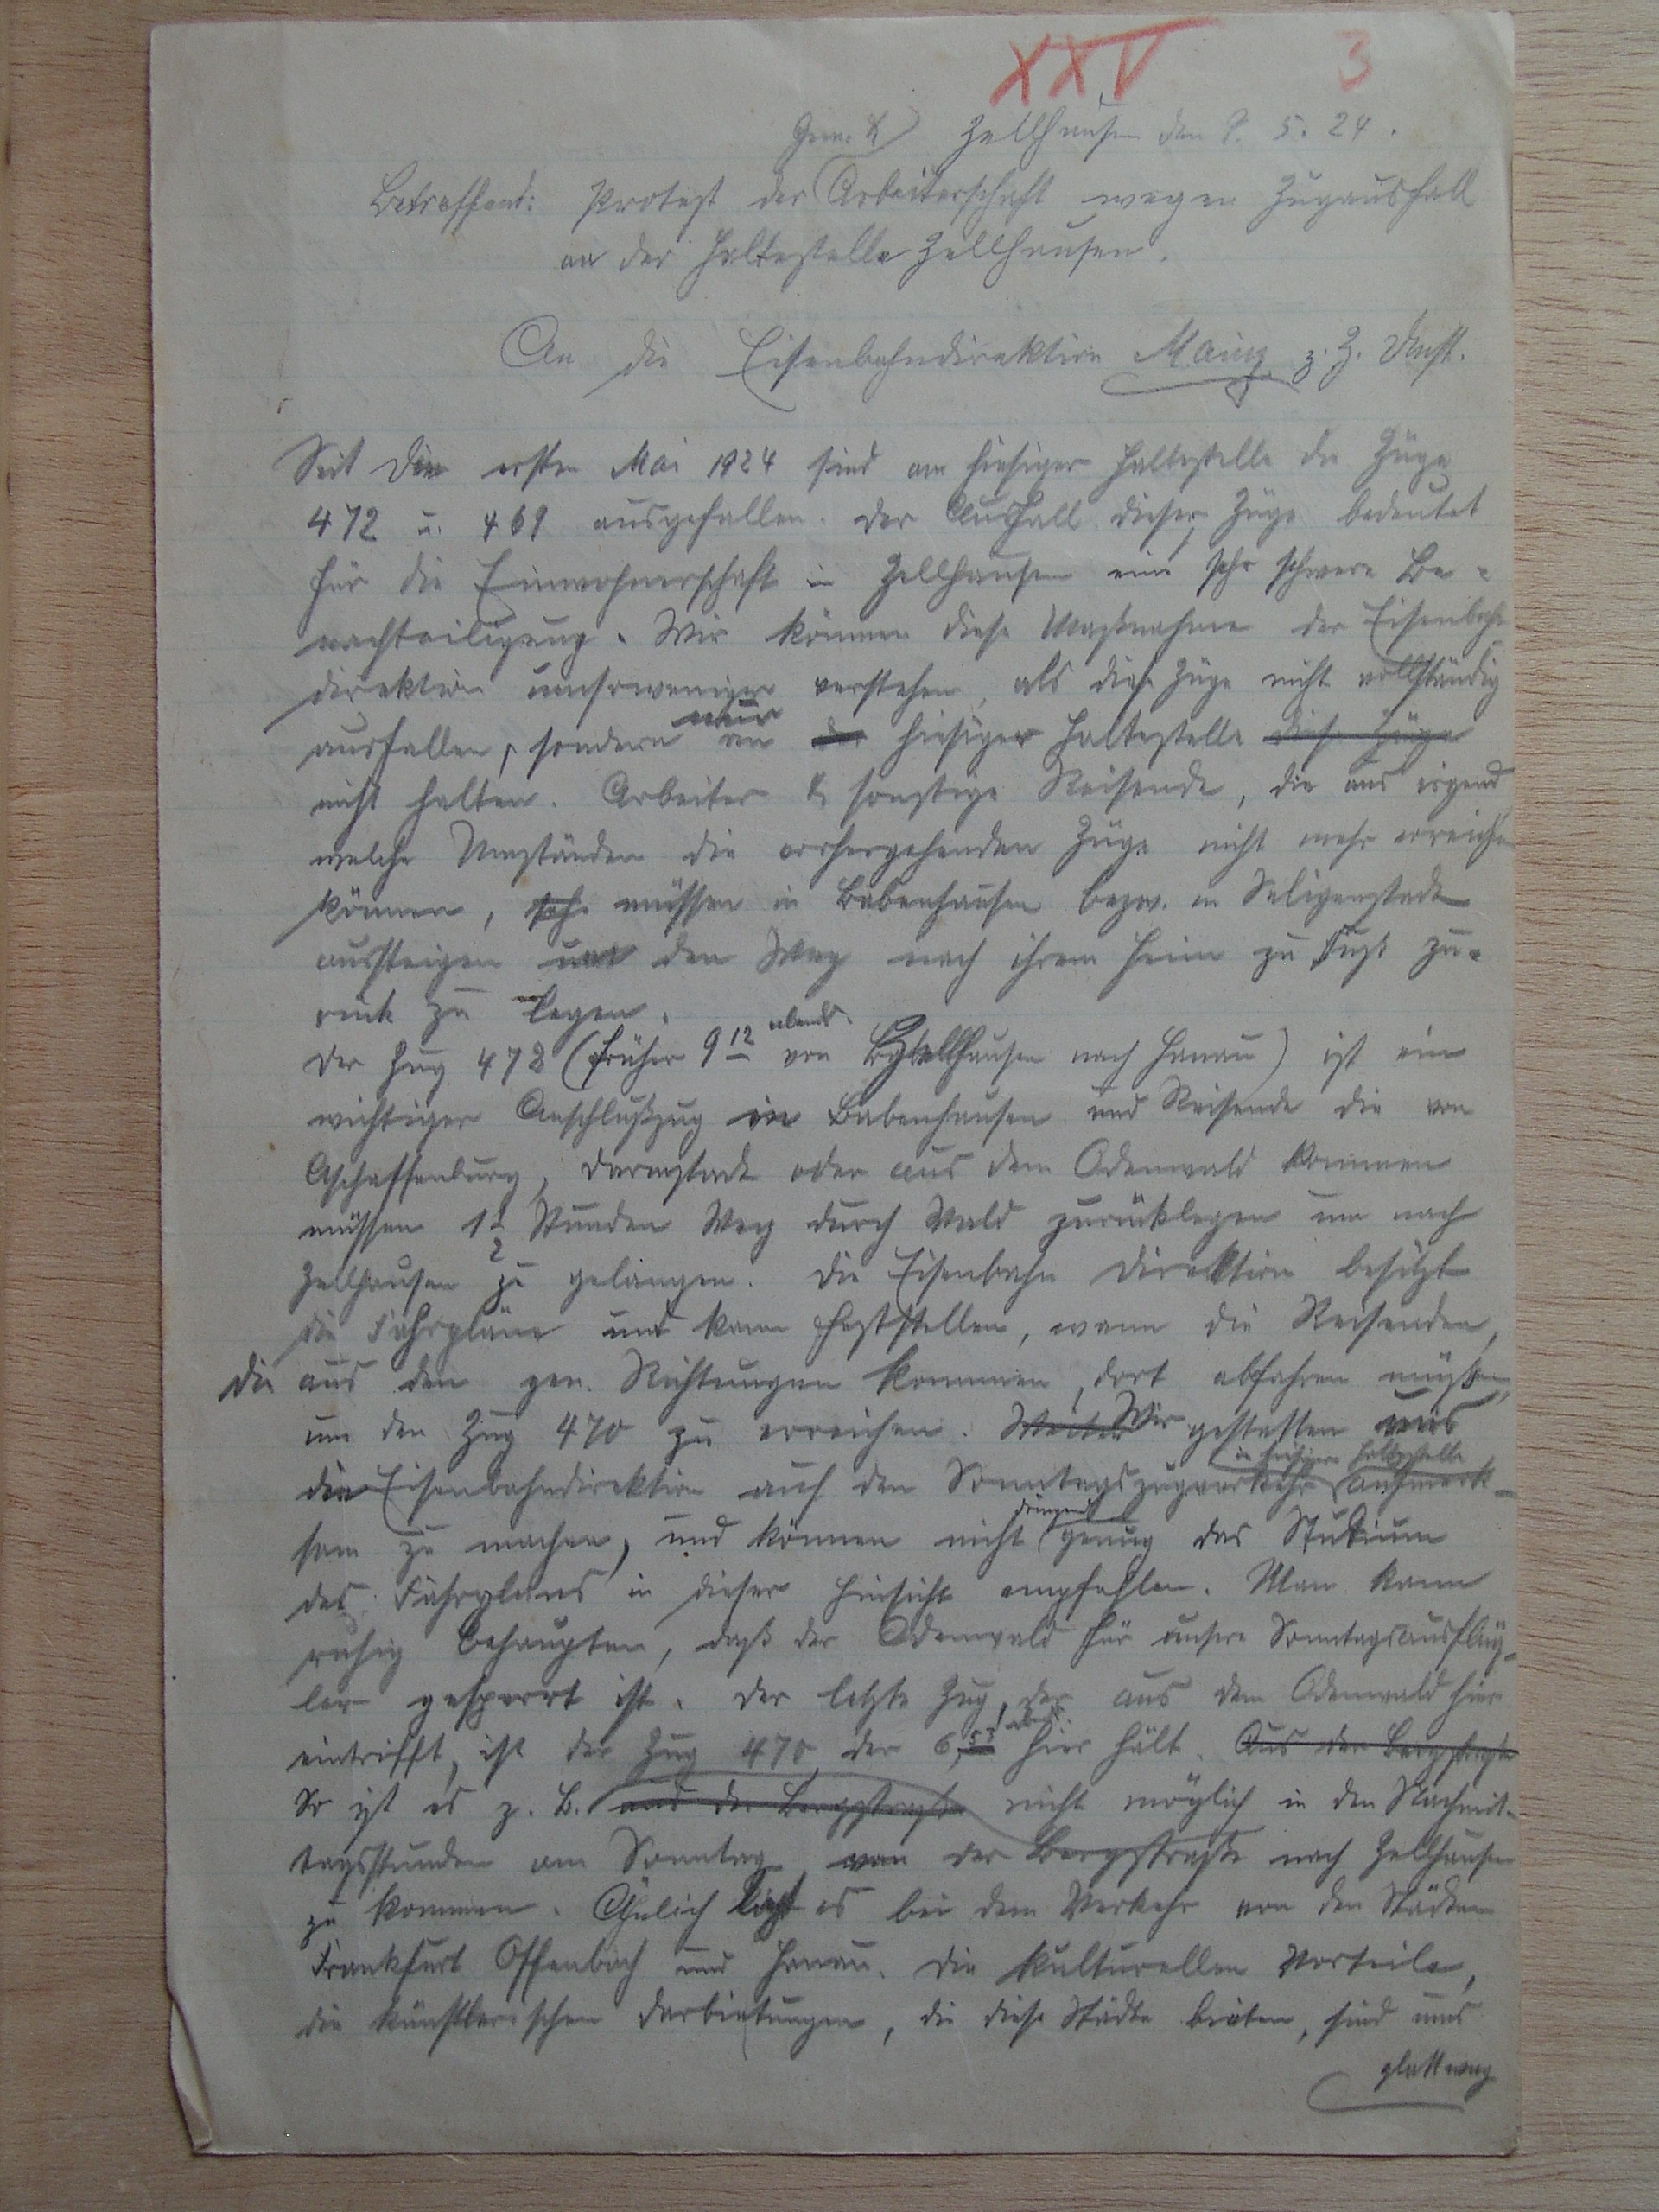 XXV 3
Zellhausen den 9. 5. 24.
Betreffend: Protest der Arbeiterschaft wegen Zugausfall
an der Haltestelle Zellhausen.
An die Eisenbahndirektion Mainz z. Z.
Seit dem ersten Mai 1924 sind an hiesiger Haltestelle die Züge
472 u. 469 ausgefallen. Der Ausfall dieser Züge bedeutet
für die Einwohnerschaft in Zellhausen eine sehr schwere Be-
nachteiligung. Wir können diese Maßnahme der Eisenbahn-
direktion umsoweniger verstehen, als diese Züge nicht vollständig
ausfallen, sondern nur an der hiesiger Haltestelle diese Züge
nicht halten. Arbeiter & sonstige Reisende, die aus irgend
welche Umständen die vorhergehenden Züge nicht mehr erreichen
können, müssen in Babenhausen bezw. in Seligenstadt
aussteigen um den Weg nach ihrem Heim zu Fuß zu-
rück zu legen.
Der Zug 472 (früher 9 12 abends von Zellhausen nach Hanau) ist ein
wichtiger Anschlußzug in Babenhausen und Reisende die von
Aschaffenburg, Darmstadt oder aus dem Odenwald kommen
müssen 1½ Stunden Weg durch Wald zurücklegen um nach
Zellhausen zu gelangen. Die Eisenbahn Direktion besitzt
die Fahrpläne und kann feststellen, wann die Reisenden,
die aus den gen. Richtungen kommen, dort abfahren müssen,
um den Zug 470 zu erreichen. Weiter Wir gestatten uns
die Eisenbahndirektion auf den Sonntagszugverkehr in hiesiger Haltestelle aufmerk-
sam zu machen, und können nicht dringend genug das Studium
des Fahrplans in dieser Hinsicht empfehlen. Man kann
ruhig behaupten, daß der Odenwald für unsere Sonntagsausflüg-
ler gesperrt ist. Der letzte Zug, der aus dem Odenwald hier
eintrifft, ist der Zug 470 der 6,53 abds. hier hält. Aus der Bergstraße
So ist es z. B. aus der Bergstraße nicht möglich in den Nachmit-
tagsstunden am Sonntag von der Bergstraße nach Zellhausen
zu kommen. Ähnlich liegt es bei dem Verkehr von den Städten
Frankfurt Offenbach und Hanau. Die kulturellen Vorteile,
die künstlerischen Darbietungen, die diese Städte bieten, sind uns
glattweg